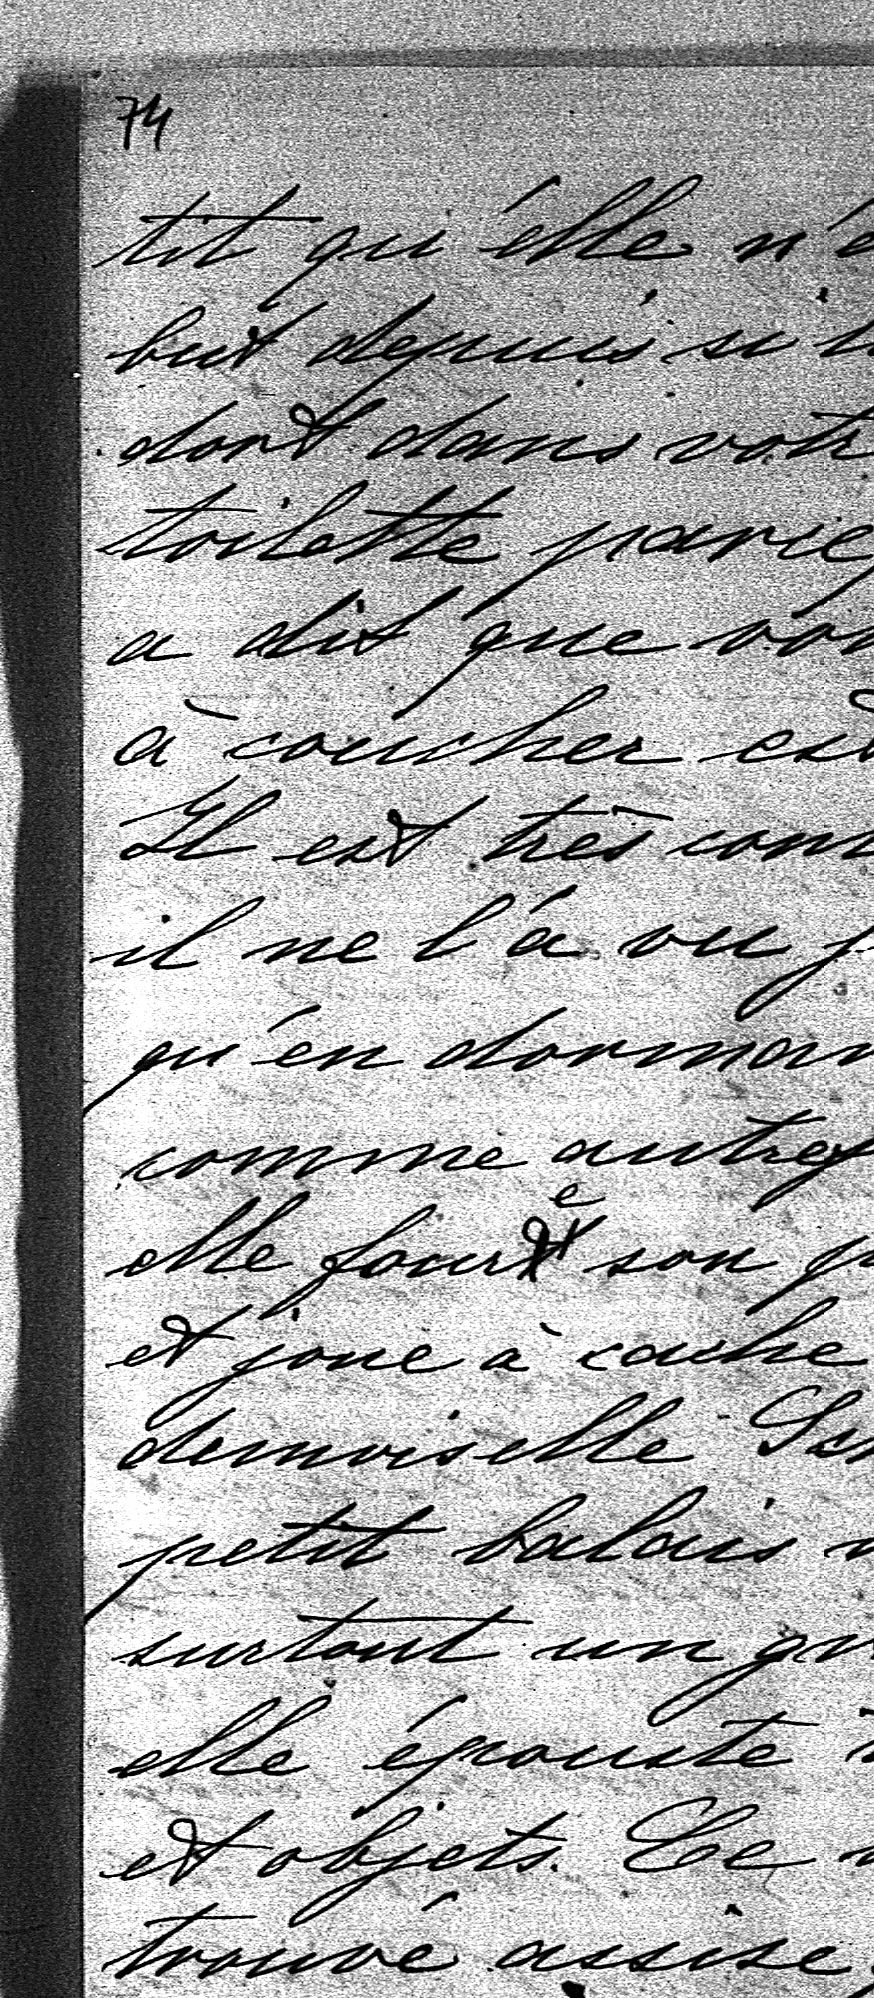 74
tit qu'elle n'é
but depuis si l
dort dans votr
toilette parie
a dit que vo
à coucher est
Il est très con
il ne l'a vu p
qu'en dorman
comme autref
elle fourre son p
et joue à cache
demoiselle
petit balais
surtout un
elle épouste
et objets. Ce
trouvé assise